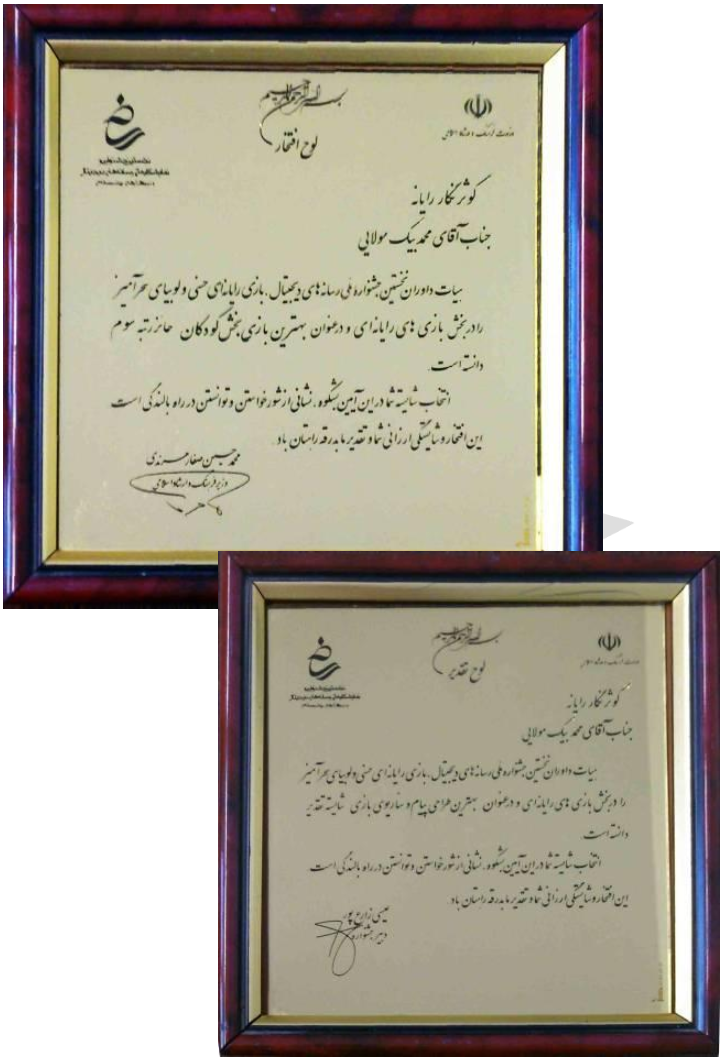 بسم الله الرحمن الرحیم
لوح افتخار
وزارت فرهنگ و ارشاد اسلامی
کوثر نگار رایانه
جناب آقای محمد بیک مولایی
هیات داوران نخستین جشنواره ملی رسانه های دیجیتال، بازی رایانه ای حسنی و لوبیای سحرآمیز
را در بخش بازی های رایانه ای و در عنوان بهترین بازی بخش کودکان حائز رتبه سوم
دانسته است.
انتخاب شایسته شما در این آیین باشکوه، نشانی از شور خواستن و توانستن در راه بالندگی است
این افتخار و شایستگی ارزانی شما و تقدیر ما بدرقه راهتان باد.
محمد حسین صفار هرندی
وزیر فرهنگ و ارشاد اسلامی
بسم الله الرحمن الرحیم
لوح تقدیر
وزارت فرهنگ و ارشاد اسلامی
کوثر نگار رایانه
جناب آقای محمد بیک مولایی
هیات داوران نخستین جشنواره ملی رسانه های دیجیتال، بازی رایانه ای حسنی و لوبیای سحرآمیز
را در بخش بازی های رایانه ای و در عنوان بهترین طراحی پیام و سناریوی بازی شایسته تقدیر
دانسته است.
انتخاب شایسته شما در این آیین باشکوه، نشانی از شور خواستن و توانستن در راه بالندگی است
این افتخار و شایستگی ارزانی شما و تقدیر ما بدرقه راهتان باد.
عیسی زارع پور
دبیر جشنواره